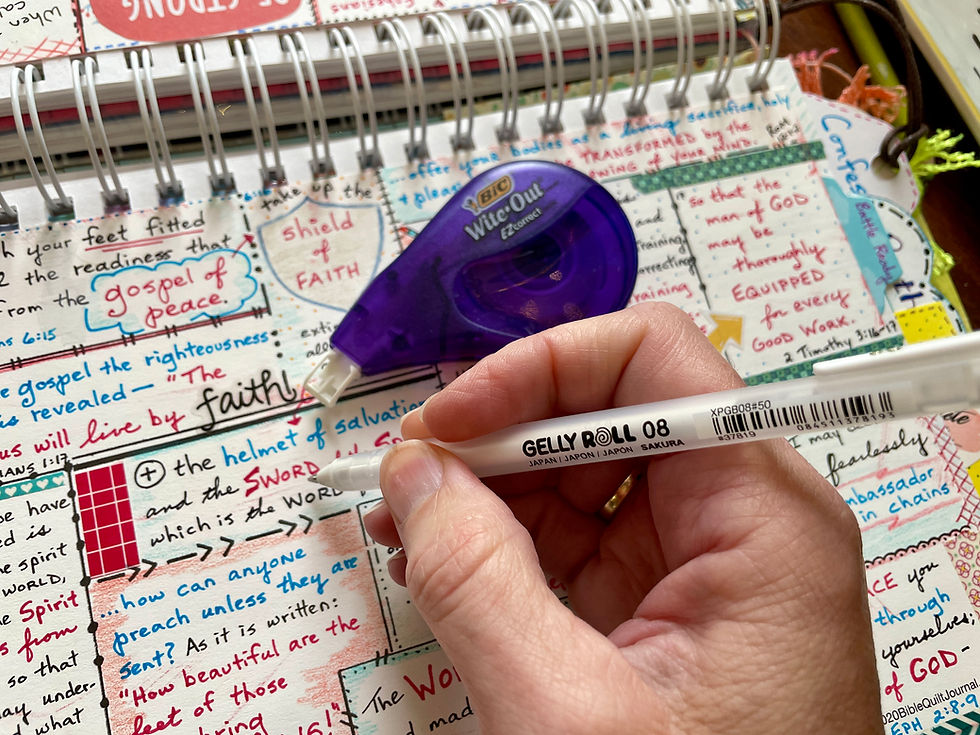 when
con
OF STRONG
Ephesians
h your feet fitted
the readiness that
from the gospel of
peace.
6:15
take up the
shield
of
FAITH
offer your bodies as a living sacrifice, holy
+ pleas
TRANSFORMED by the
OF YOUR MIND.
BiC
Wite·Out
EZcorrect
so that the
man of GOD
may be
thoroughly
EQUIPPED
for every
GOOD WORK.
2 Timothy 3:16-17
and
training
correcting
training
Confess
Battle Ready
gospel the righteousness
is revealed— "The
us will live by faith!
1:17
the helmet of salvation
and the SWORD
which is the WORD
GELLY ROLL 08
JAPAN / JAPON / JAPÓN SAKURA
XPGB08#50
#37819
084511378193
I may
fearlessly
mbassador
in chains
be have
ed is
he spirit
WORLD,
he Spirit
s from
so that
ay under-
d what
...how can anyone
preach unless they are
sent? As it is written:
"How beautiful are the
feet of those
bring
The WO
and made
ACE you
through
yourselves;
of GOD-
2020BibleQuiltJournal
EPH 2:8-9